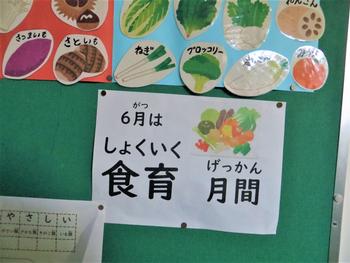 れんこん
さつまいも
さといも
ねぎ
ブロッコリー
がつ
6月は
しょくいく
食育
げっかん
月間
やさしい